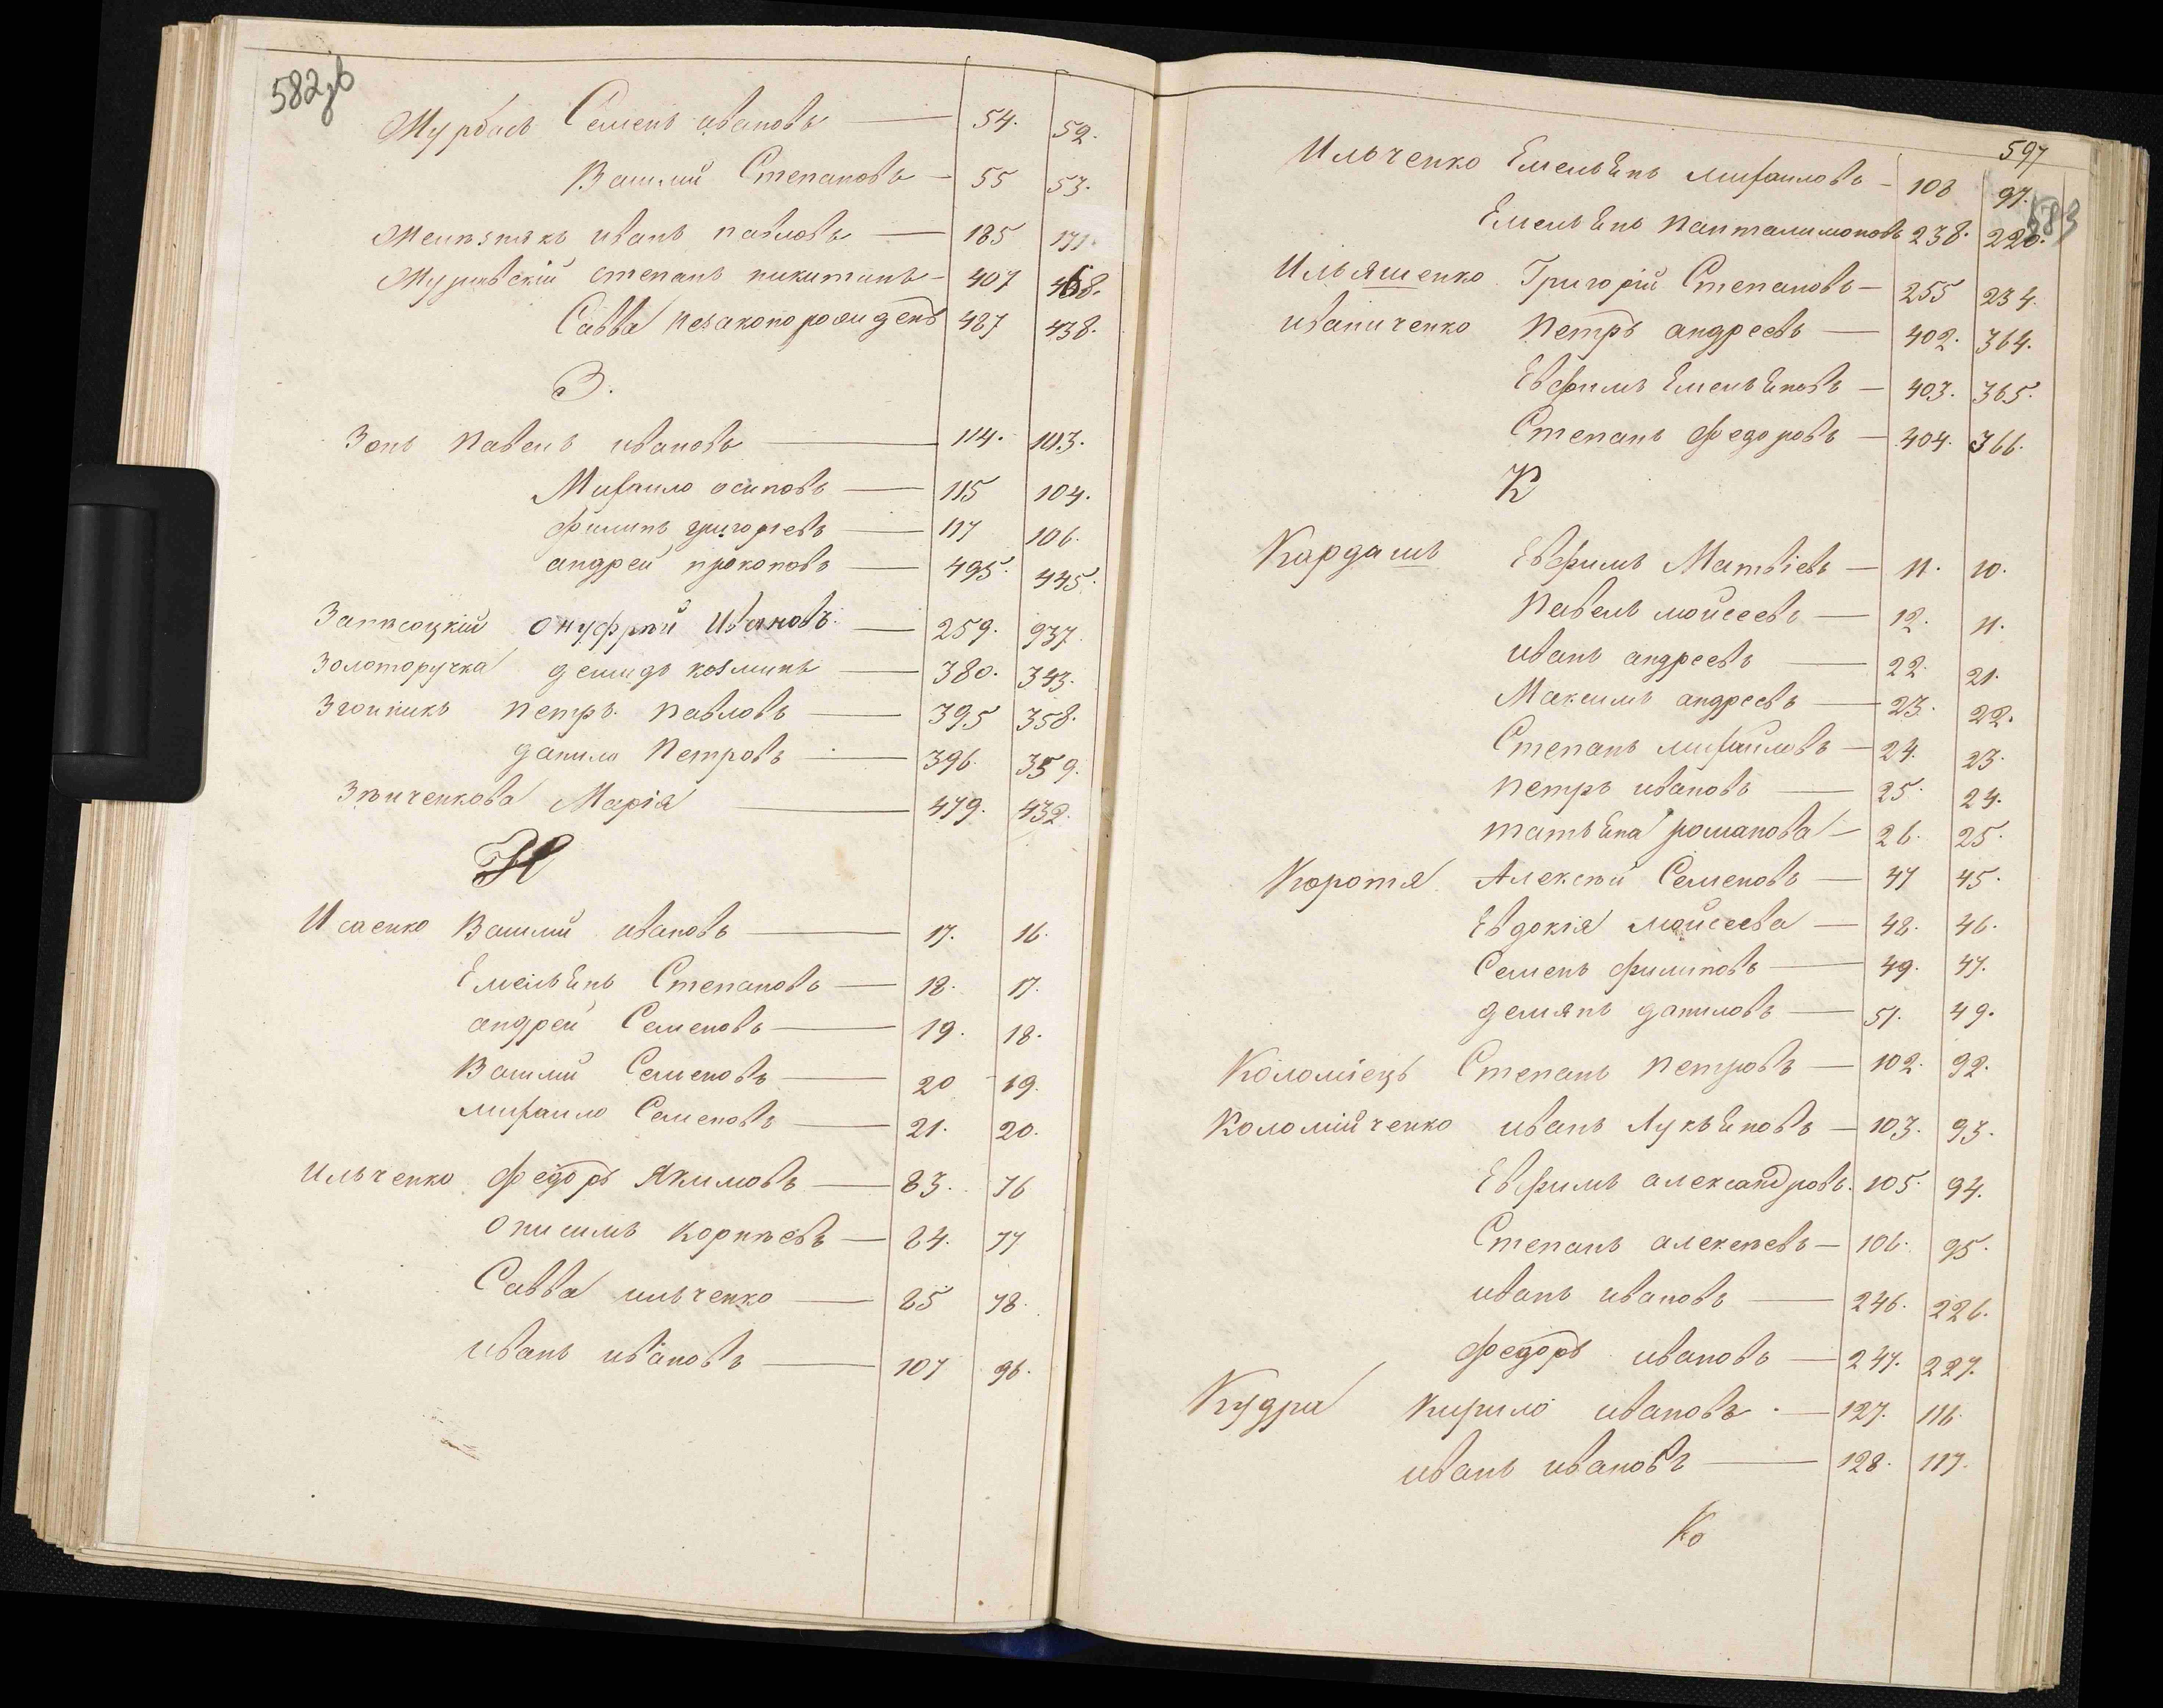 582зв
Журбасъ Семенъ ивановъ — 54. 52.
Василий Степановъ — 55 53.
Желизнякъ иванъ павловъ — 185 171.
Журавскій степанъ никитинъ — 407 468.
Савва незаконорожденъ 487 438.
З.
Зонь Павелъ ивановъ — 114. 103.
Михаило осиповъ — 115 104.
филипъ григориевъ — 117 106.
андрей прокоповъ — 495. 445.
Онуфрій Ивановъ — 259. 237.
Золоторучка демидъ козминъ — 380. 343.
Згонникъ Петръ Павловъ — 395 358.
данило Петровъ — 396. 359.
Зѣнченкова Марія — 479. 432.
И
Исаенко Василий ивановъ — 17. 16.
Емельянъ Степановъ — 18. 17.
андрей Семеновъ — 19. 18.
Василий Семеновъ — 20 19.
михаило Семеновъ — 21. 20.
Ильченко федоръ Якимовъ — 83. 76
Онисимъ Корнѣевъ — 84. 77
Савва ильченко — 85 78.
иванъ ивановъ — 107 96.
597
583
Ильченко Емельянъ михаиловъ — 108 97.
Емельянъ Панталимоновъ 238. 220.
Ильяшенко Григорій Степановъ — 255 234.
иваниченко Петръ андреевъ — 402. 364.
Евфимъ Емельяновъ — 403. 365.
Степанъ федоровъ — 404. 366.
К
Кардашъ Евфимъ Матвіевъ — 11. 10.
Павелъ мойсеевъ — 12. 11.
иванъ андреевъ — 22. 21.
Максимъ андреевъ — 23. 22.
Степанъ михайловъ — 24. 23.
Петръ ивановъ — 25. 24.
татьяна романова — 26. 25.
Коротя Алексѣй Семеновъ — 47 45.
Евдокія мойсеева — 48. 46.
Семенъ филиповъ — 49. 47.
демянъ даниловъ — 51. 49.
Коломіецъ Степанъ Петровъ — 102. 92.
Коломійченко иванъ Лукьяновъ — 103. 93.
Евфимъ александровъ. 105. 94.
Степанъ алексѣевъ — 106. 95.
иванъ ивановъ — 246. 226.
федоръ ивановъ — 247. 227.
Кудра Кирило ивановъ. — 127. 116.
иванъ ивановъ — 128. 117.
Ко